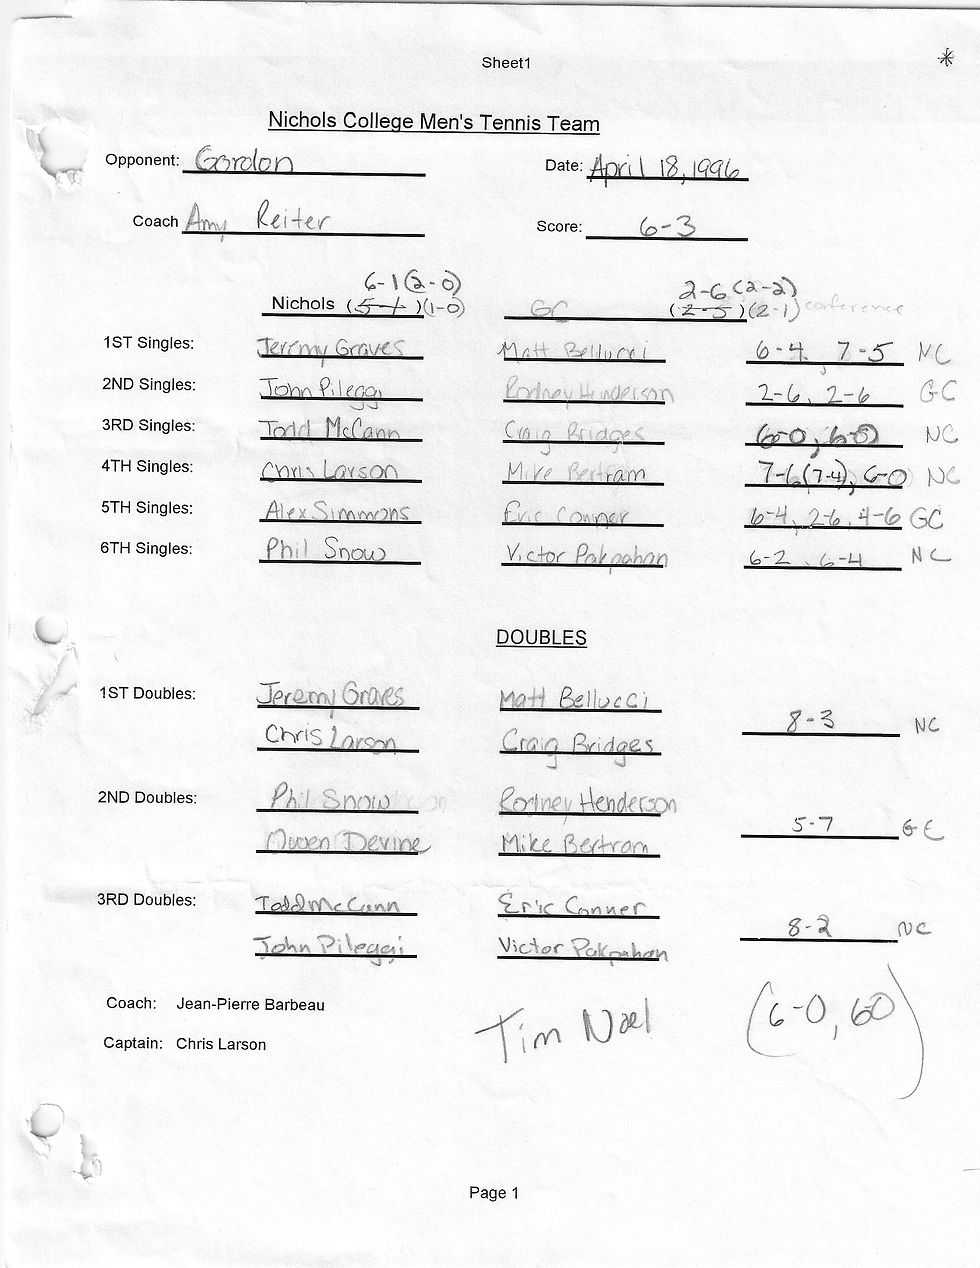 Sheet1 *
Nichols College Men's Tennis Team
Opponent: Gordon Date: April 18, 1996
Coach Amy Reiter Score: 6-3
6-1 (2-0) 2-6 (2-2)
Nichols (5-1)(1-0) GC (2-5)(2-1) conference
1ST Singles: Jeremy Graves Matt Bellucci 6-4, 7-5 NC
2ND Singles: John Pileggi Rodney Henderson 2-6, 2-6 GC
3RD Singles: Todd McCann Craig Bridges 6-0, 6-0 NC
4TH Singles: Chris Larson Mike Bertram 7-6(7-4), 6-0 NC
5TH Singles: Alex Simmons Eric Conner 6-4, 2-6, 4-6 GC
6TH Singles: Phil Snow Victor Pakpahan 6-2, 6-4 NC
DOUBLES
1ST Doubles: Jeremy Graves Matt Bellucci
8-3 NC
Chris Larson Craig Bridges
2ND Doubles: Phil Snow Rodney Henderson
5-7 GC
Owen Devine Mike Bertram
3RD Doubles: Todd McCann Eric Conner
8-2 NC
John Pileggi Victor Pakpahan
Coach: Jean-Pierre Barbeau
Tim Noel (6-0, 6-0)
Captain: Chris Larson
Page 1